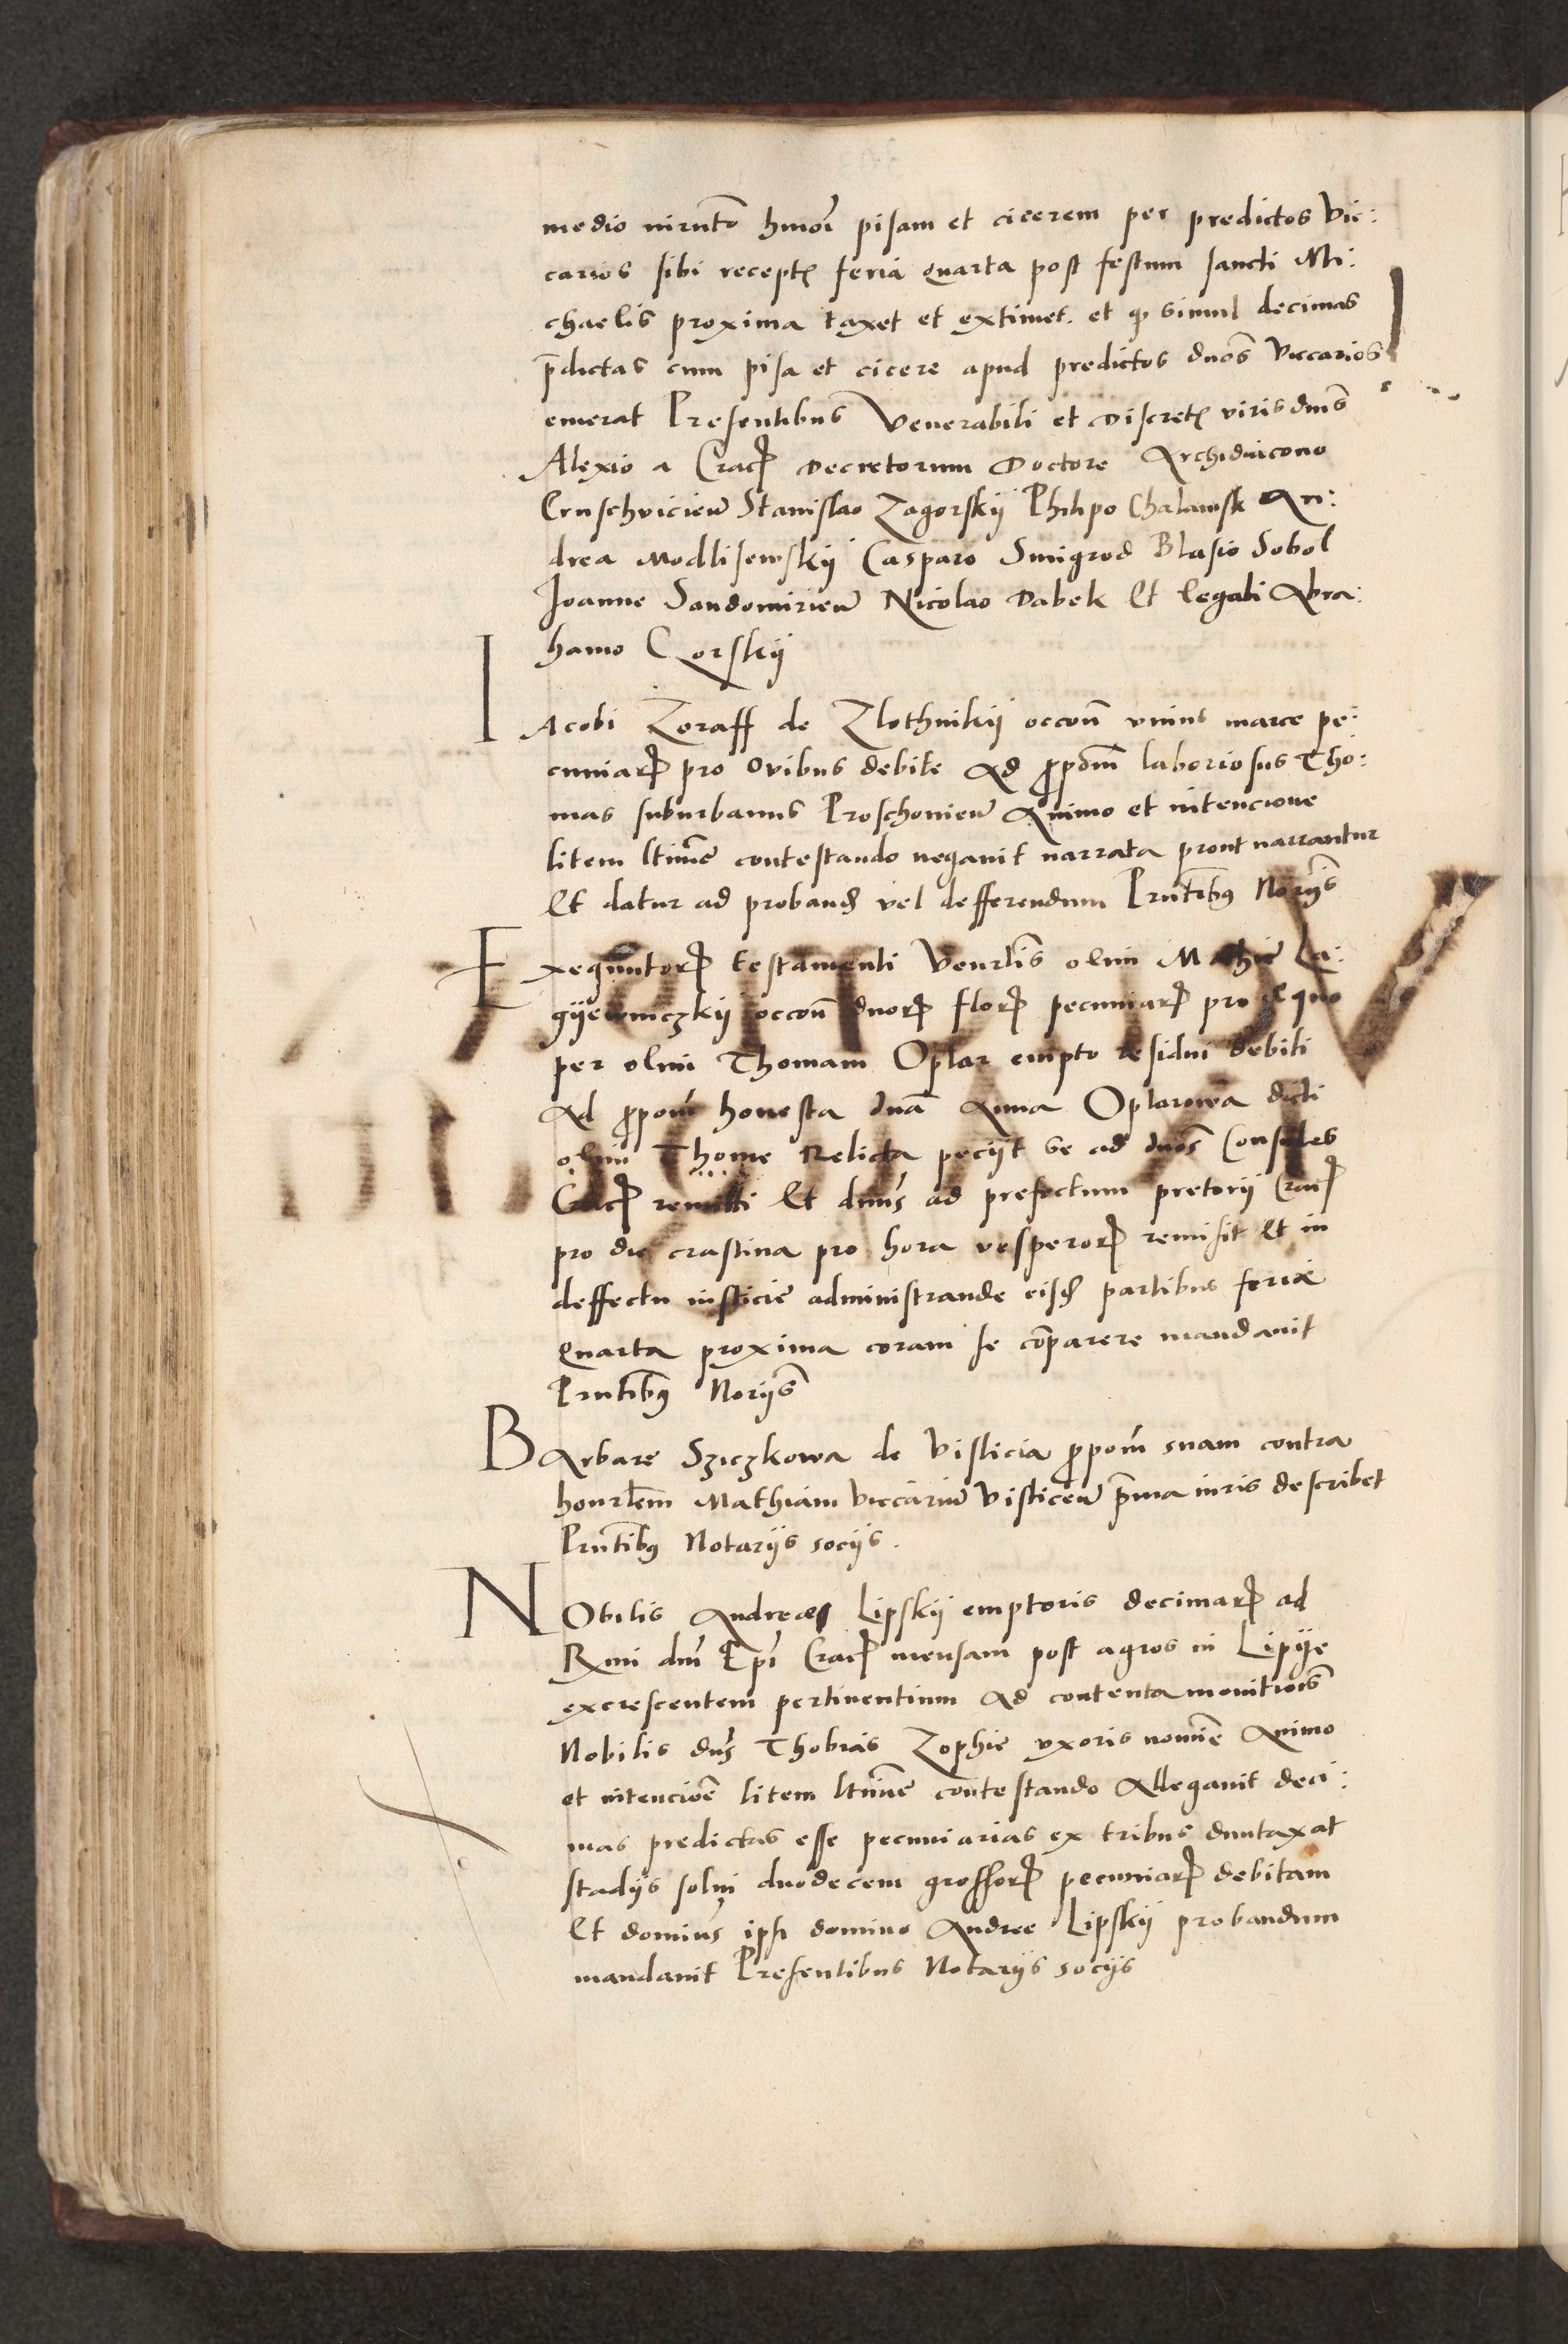 medio iuramento hmõi pisam et cicerem per predictos Vic:
carios sibi recept feria quarta post festum sancti Mi:
chaelis proxima taxet et extimet. et qp simul decimas
p̄dictas cum pisa et cicere apud predictos dnos̄ viccarios
emerat Presentibus Venerabili et Discret viris dnis̄
Alexio a Crac Decretorum Doctore Archidiacono
Cruschvicien Stanislao Zagorskij Philipo Chalawsk An:
drea Modlisewskij Casparo Smigrod Blasio Sobol
Joanne Sandomirien Nicolao Dabek Et legali Abra:
hamo Gorskij
IAcobi Zoraff de Zlothnikij occoñ vnius marce pe:
cuniar pro Ovibus debite Ad ppom̄ laboriosus Tho:
mas suburbanus Proschovien Animo et intencione
litem ltim̄e contestando negavit narrata prout narrantur
Et datur ad proband vel defferendum Prntib9 Norijs̄
Exequutor testamenti Venrlis̄ olim Mathie
gijewniczkij occoñ duor flor pecuniar pro equo
per olim Thomam Optar empto residui debiti
Ad ppom̄ honesta dnā Anna Optarowa dicti
olim Thome Relicta peciit se ad dnos̄ Consules
Crac remitti Et dnus̄ ad prefectum pretorij Crac
pro die crastina pro hora vesperor remisit Et in
deffectu iusticie administrande eisd partibus feria
quarta proxima coram se cōparere mandavit
Prntib9 Norijs̄
BArbare Sziczkowa de Vislicia ppom̄ suam contra
honrlem̄ Mathiam viccariu Vislicen p̄ma iuris describet
Prntib9 Notarijs socijs.
NObilis Andreas Lipskij emptoris decimar ad
Rmi dni Epi Crac mensam post agros in Lipije
excrescentem pertinentium Ad contenta monitiois̄
Nobilis dns̄ Thobias Zophie vxoris nomīe Animo
et intencioe̅ litem ltim̄e contestando Allegavit deci:
mas predictas esse pecuniarias ex tribus duntaxat
stadijs solvj duodecem grossor pecuniar debitam
Et domīus ipsi domino Andree Lipskij probandum
mandavit Presentibus Notarijs socijs